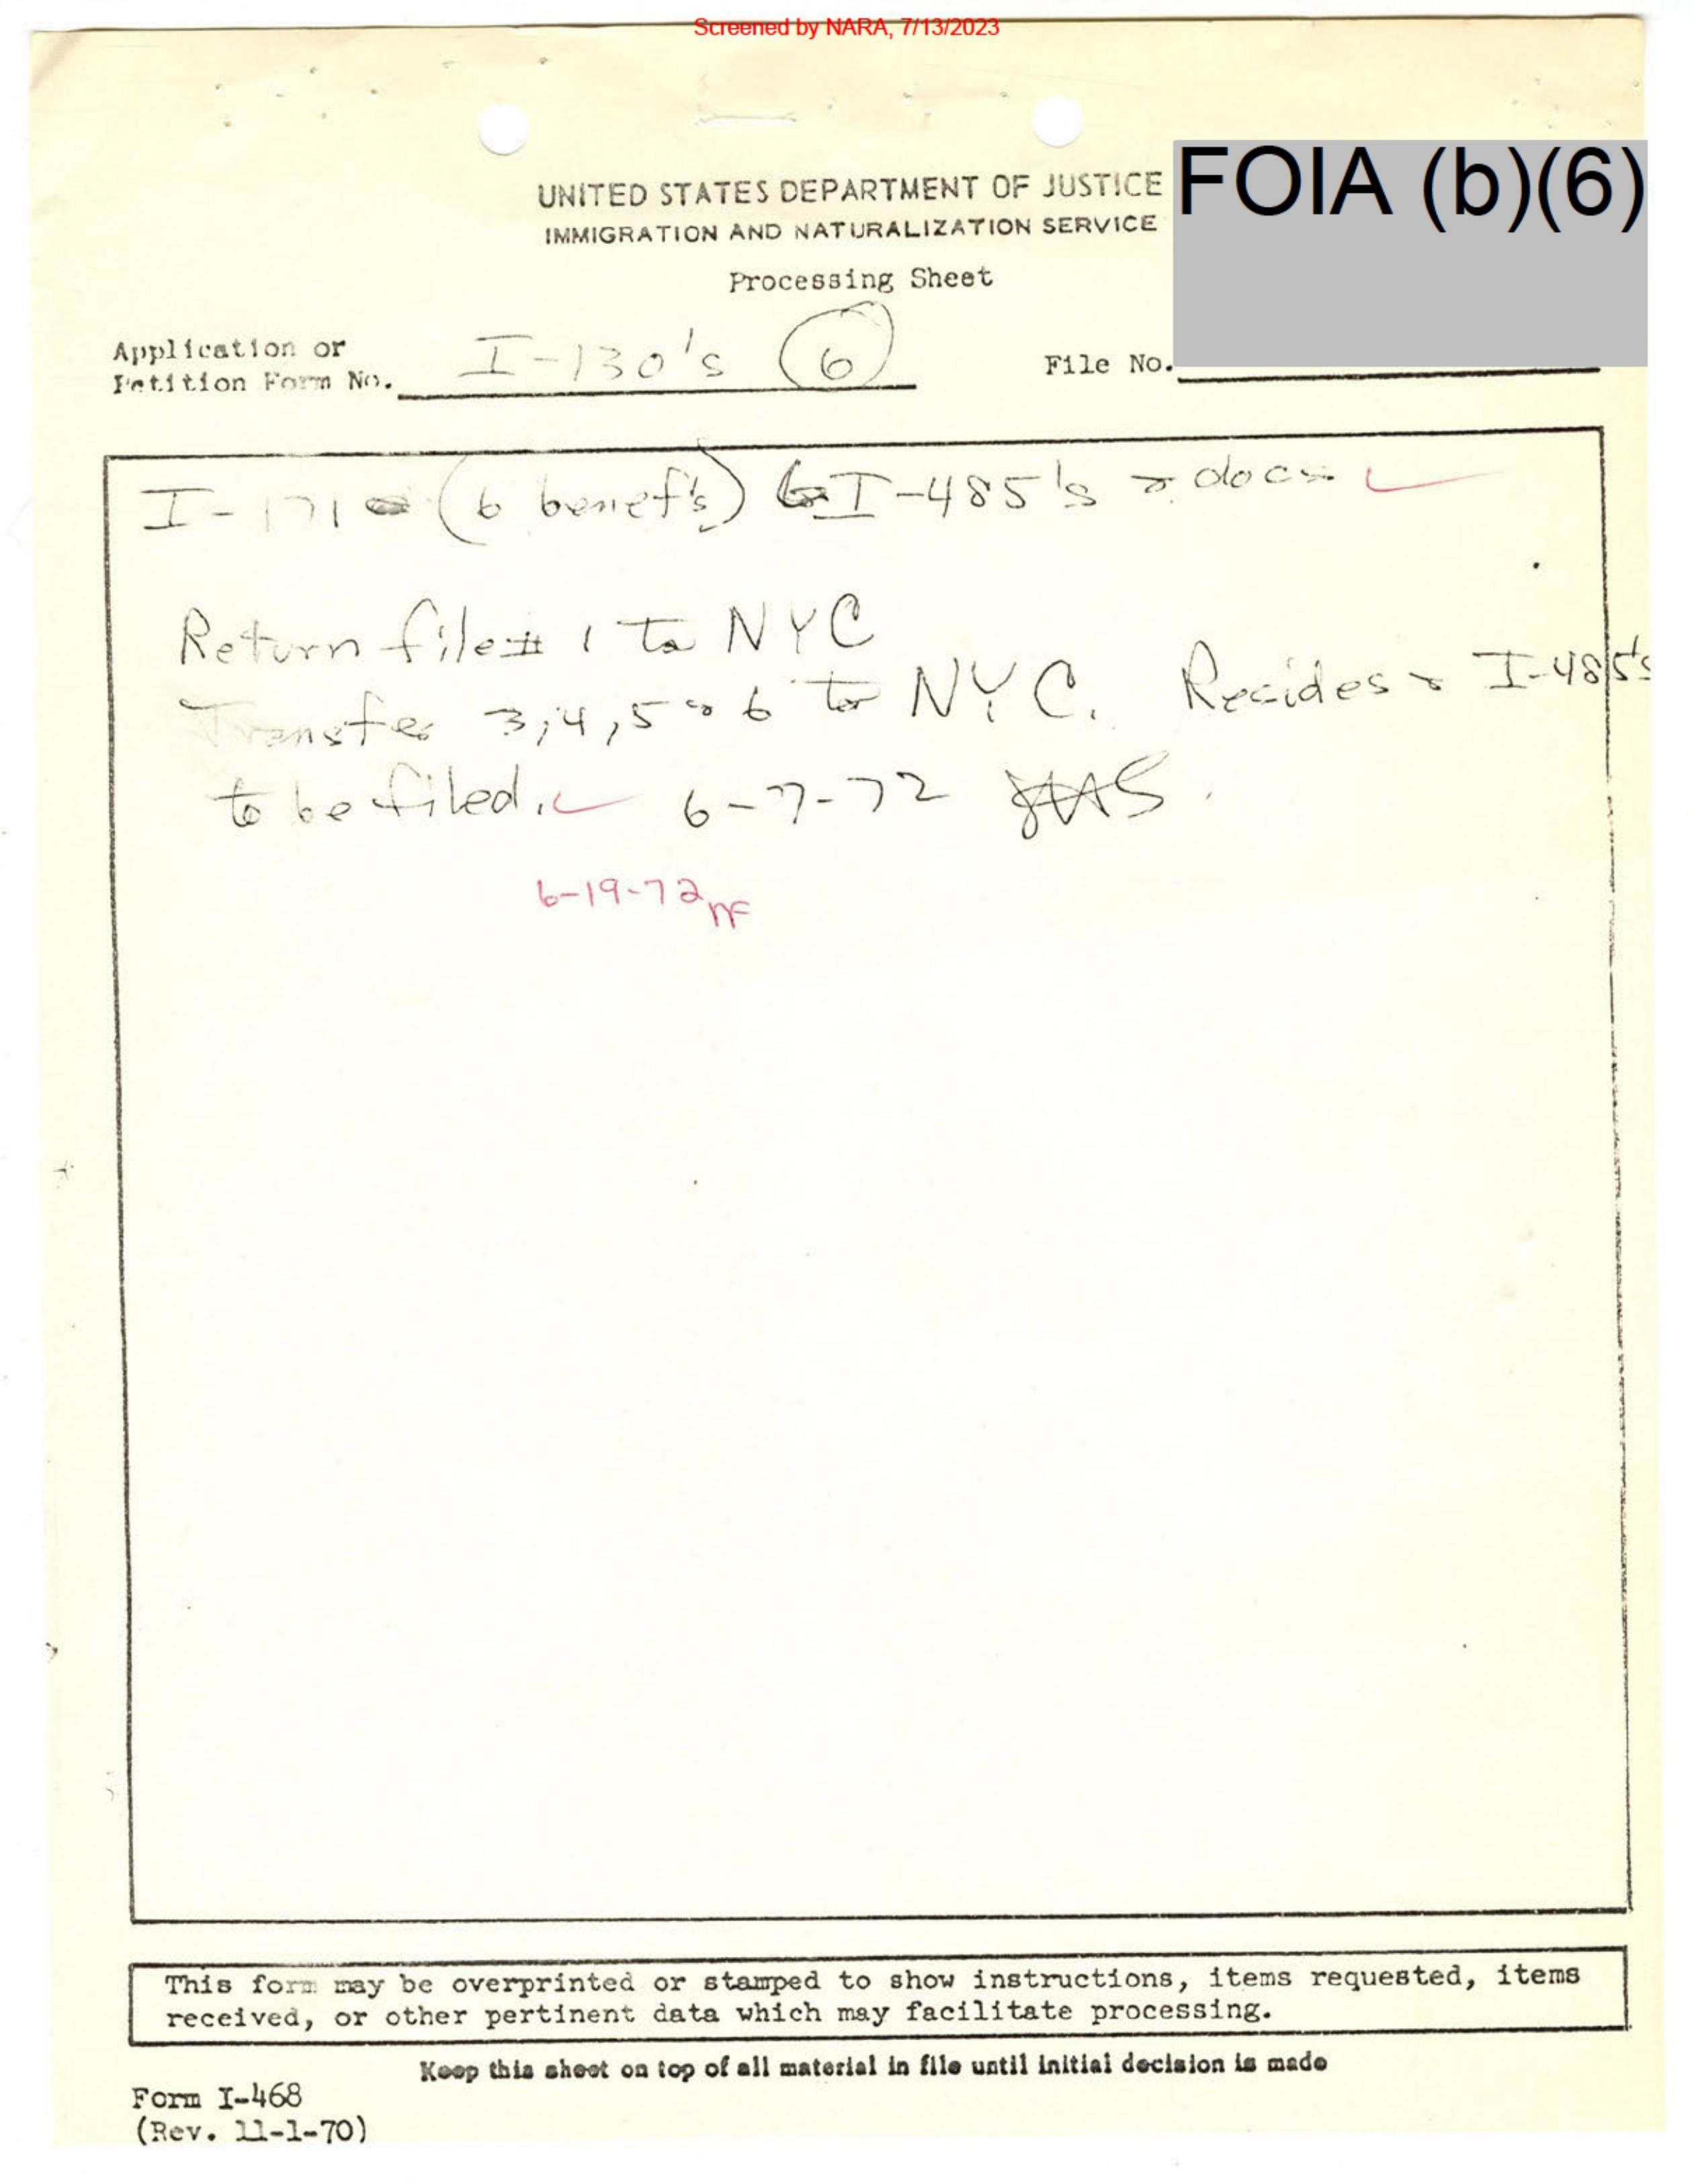 Screened by NARA, 7/13/2023
FOIA (b)(6)
UNITED STATES DEPARTMENT OF JUSTICE
IMMIGRATION AND NATURALIZATION SERVICE
Processing Sheet
Application or
Petition Form No. I-130's (6) File No.
I-171 (6 benef's) I-485's & docs
Return file # 1 to NYC
Transfer 3, 4, 5 & 6 to NYC. Resides & I-485's
to be filed. 6-7-72
6-19-72
This form may be overprinted or stamped to show instructions, items requested, items
received, or other pertinent data which may facilitate processing.
Keep this sheet on top of all material in file until initial decision is made
Form I-468
(Rev. 11-1-70)